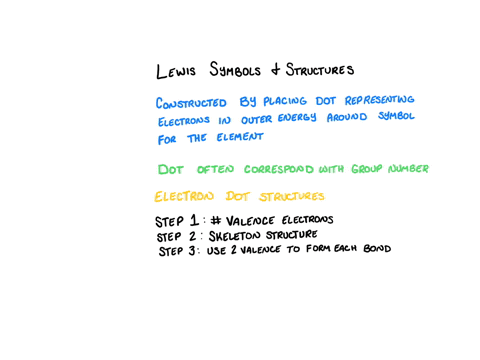 LEWIS SYMBOLS & STRUCTURES
CONSTRUCTED BY PLACING DOT REPRESENTING
ELECTRONS IN OUTER ENERGY AROUND SYMBOL
FOR THE ELEMENT
DOT OFTEN CORRESPOND WITH GROUP NUMBER
ELECTRON DOT STRUCTURES
STEP 1: # VALENCE ELECTRONS
STEP 2: SKELETON STRUCTURE
STEP 3: USE 2 VALENCE TO FORM EACH BOND